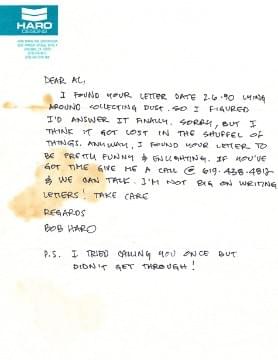 HARO
DESIGNS
DEAR AL,
I FOUND YOUR LETTER DATE 2.6.90 LYING
AROUND COLLECTING DUST. SO I FIGURED
I'D ANSWER IT FINALLY. SORRY, BUT I
THINK IT GOT LOST IN THE SHUFFEL OF
THINGS. ANYWAY, I FOUND YOUR LETTER TO
BE PRETTY FUNNY & ENLIGHTING. IF YOU'VE
GOT TIME GIVE ME A CALL @ 619-438-4812
& WE CAN TALK. I'M NOT BIG ON WRITING
LETTERS! TAKE CARE
REGARDS
BOB HARO
P.S. I TRIED CALLING YOU ONCE BUT
DIDN'T GET THROUGH!